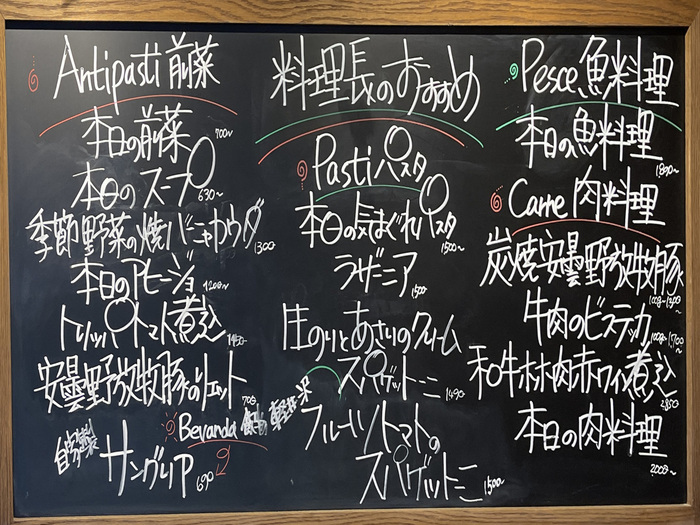 Antipasti 前菜
本日の前菜 700~
本日のスープ 630~
季節野菜の焼バーニャカウダ 1300
本日のアヒージョ 1200~
トリッパトマト煮込 1450
安曇野放牧豚のリエット 700
Bevanda 飲物
自家製
サングリア 690
料理長のおすすめ
Pasti パスタ
本日の気まぐれパスタ 1500~
ラザニア 1500
生のりとあさりのクリーム
スパゲットーニ 1490
フルーツトマトの
スパゲットーニ 1500~
Pesce 魚料理
本日の魚料理 1800~
Carne 肉料理
炭焼安曇野放牧豚 100g~1300~
牛肉のビステッカ 100g~1700~
和牛ホホ肉赤ワイン煮込 2850
本日の肉料理 2000~